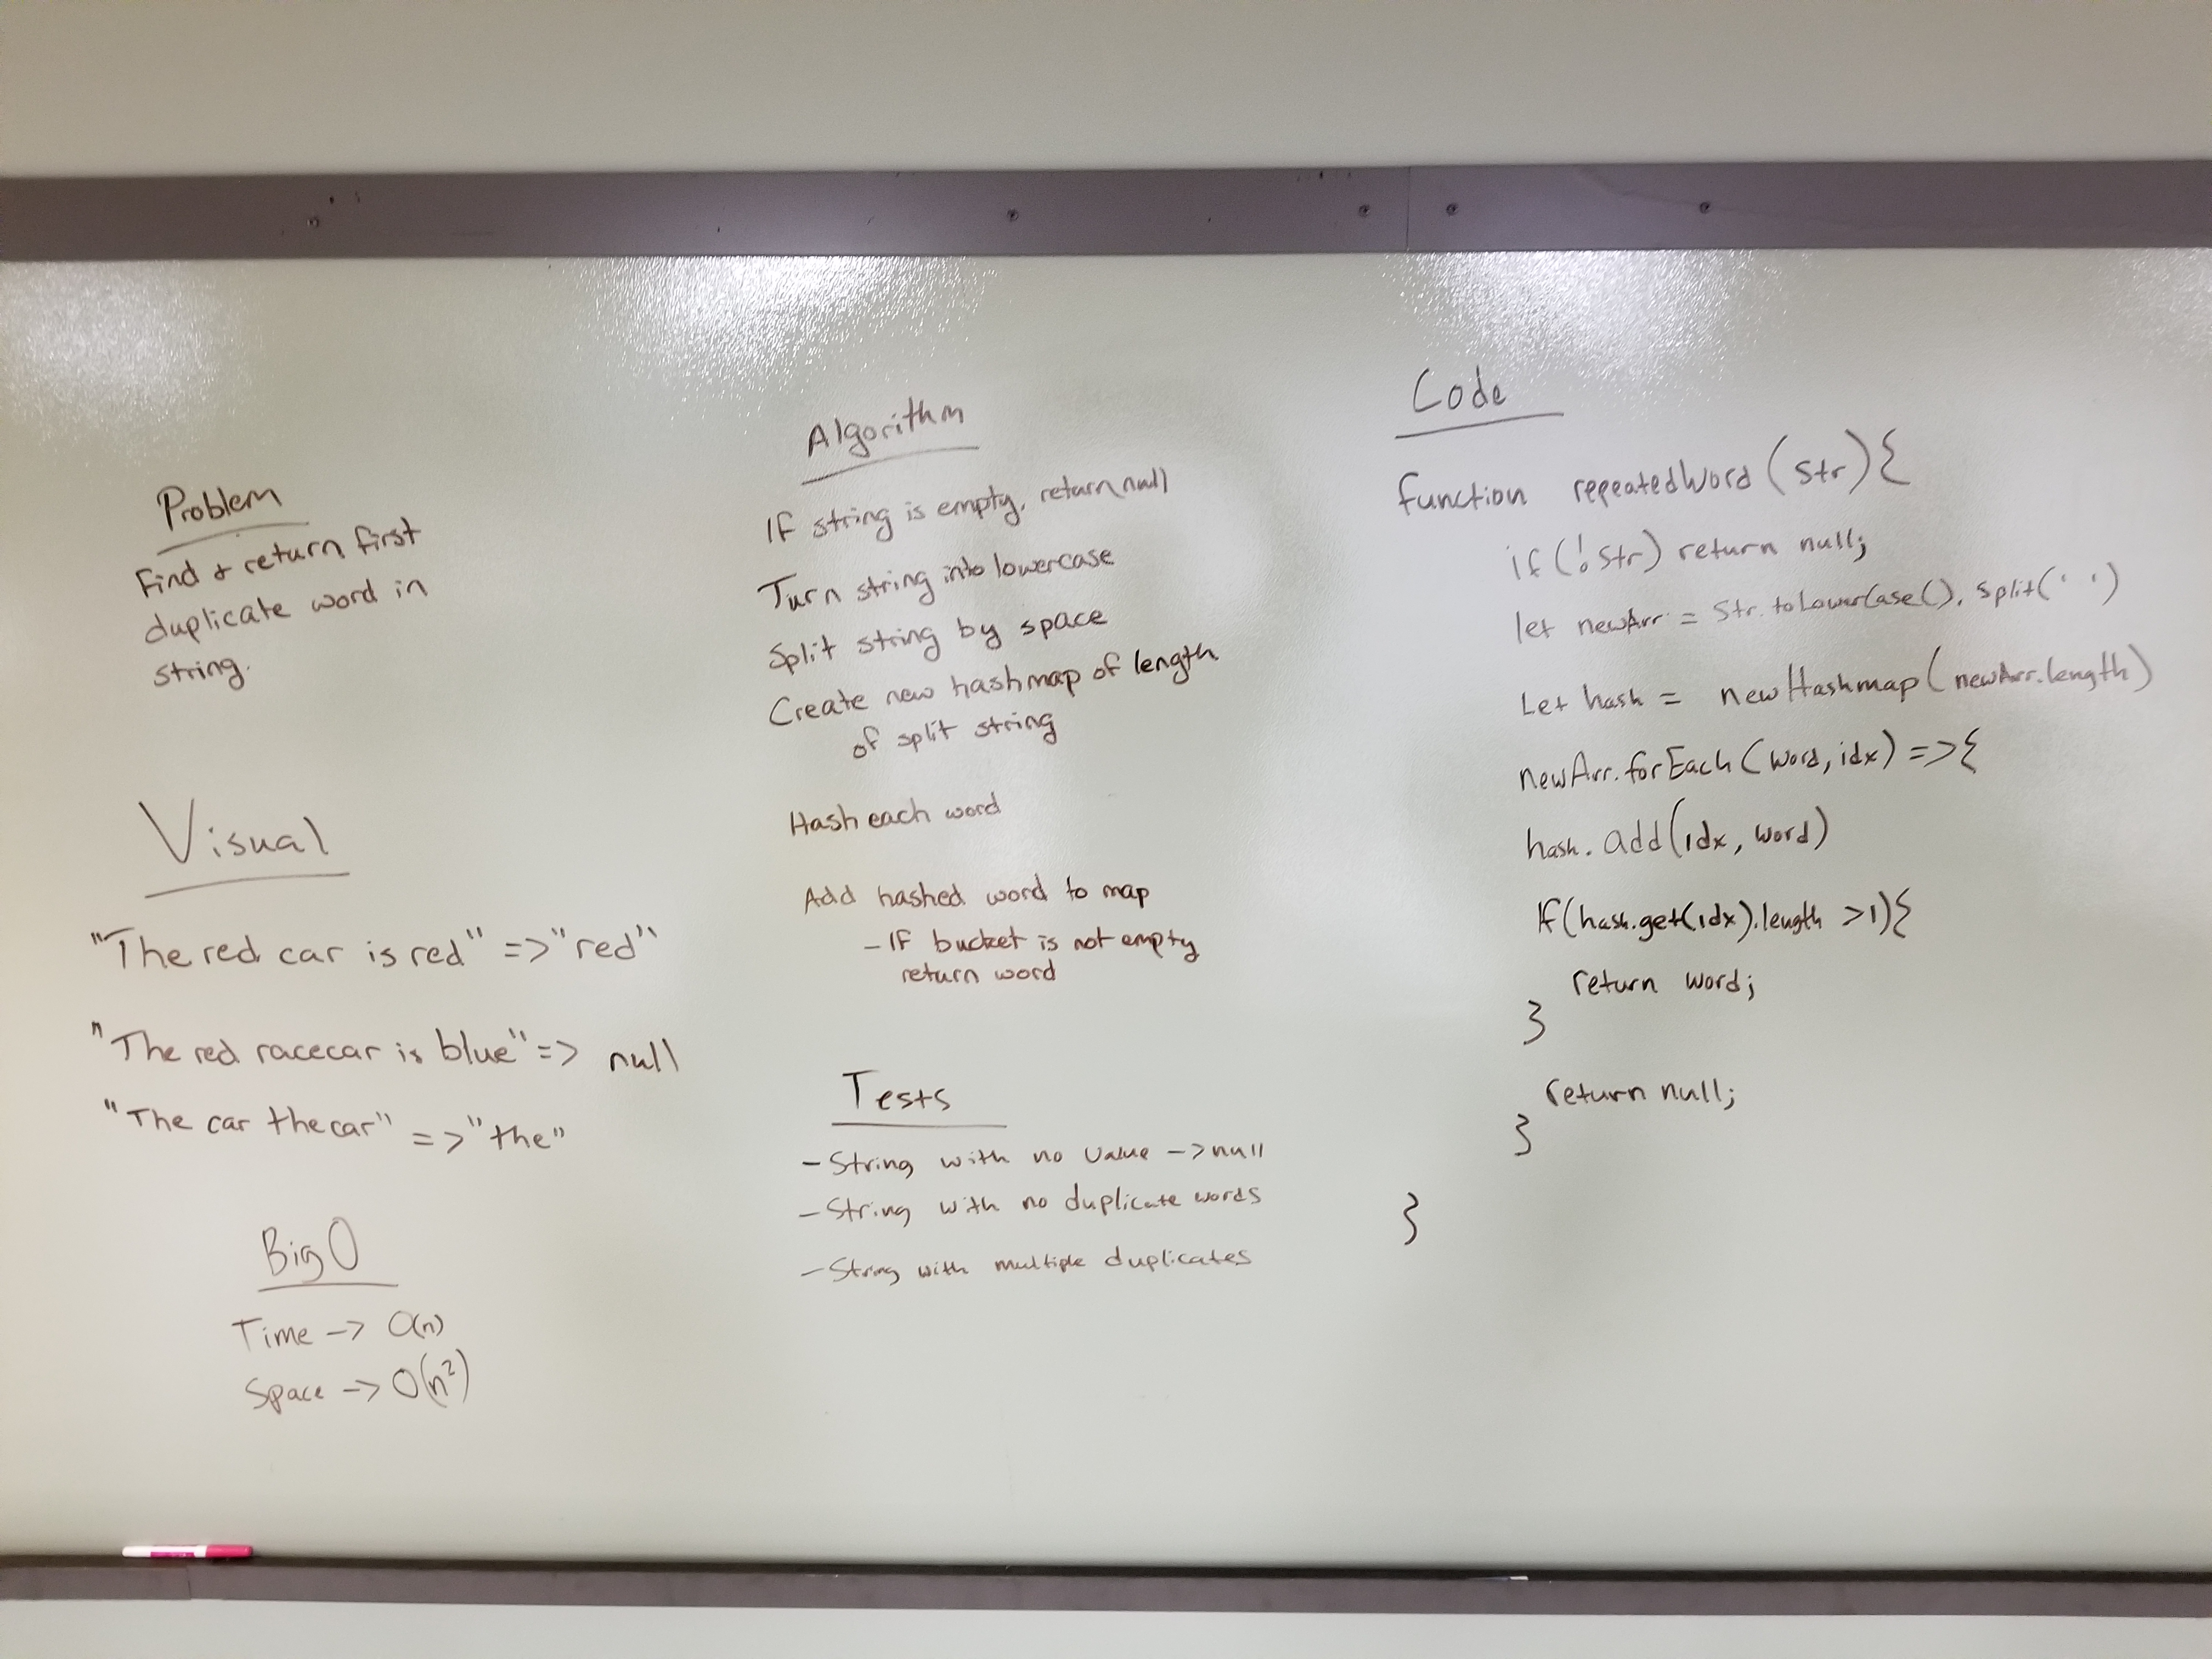 Problem
Find & return first
duplicate word in
string.
Visual
"The red car is red" => "red"
"The red racecar is blue" => null
"The car the car" => "the"
Big O
Time -> O(n)
Space -> O(n²)
Algorithm
If string is empty, return null
Turn string into lowercase
Split string by space
Create new hashmap of length
of split string
Hash each word
Add hashed word to map
- If bucket is not empty
return word
Tests
- String with no value -> null
- String with no duplicate words
- String with multiple duplicates
Code
function repeatedWord(str){
if(!str) return null;
let newArr = str.toLowerCase().split(' ')
Let hash = new Hashmap(newArr.length)
newArr.forEach(word, idx) => {
hash.add(idx, word)
If(hash.get(idx).length >1){
return word;
}
return null;
}
}